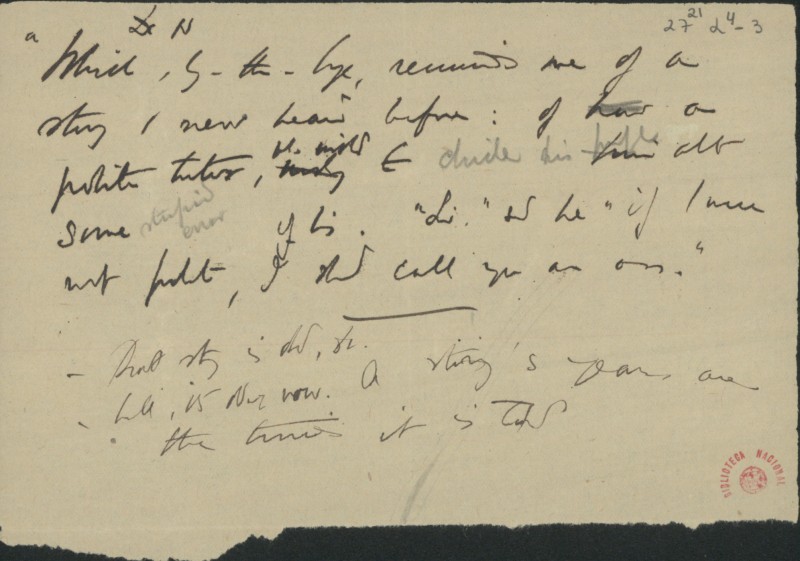 27 21 L4-3
a
Dr N
Which, by-the-bye, reminds me of a
story I never heard before: of a
polite tutor, to chide his pupil
some stupid error of his. "Sir." sd he "if I were
not polite, I shd call you an ass."
- That story is old, sir.
- Well, it's older now. A story's years are
the times it is told
BIBLIOTECA NACIONAL